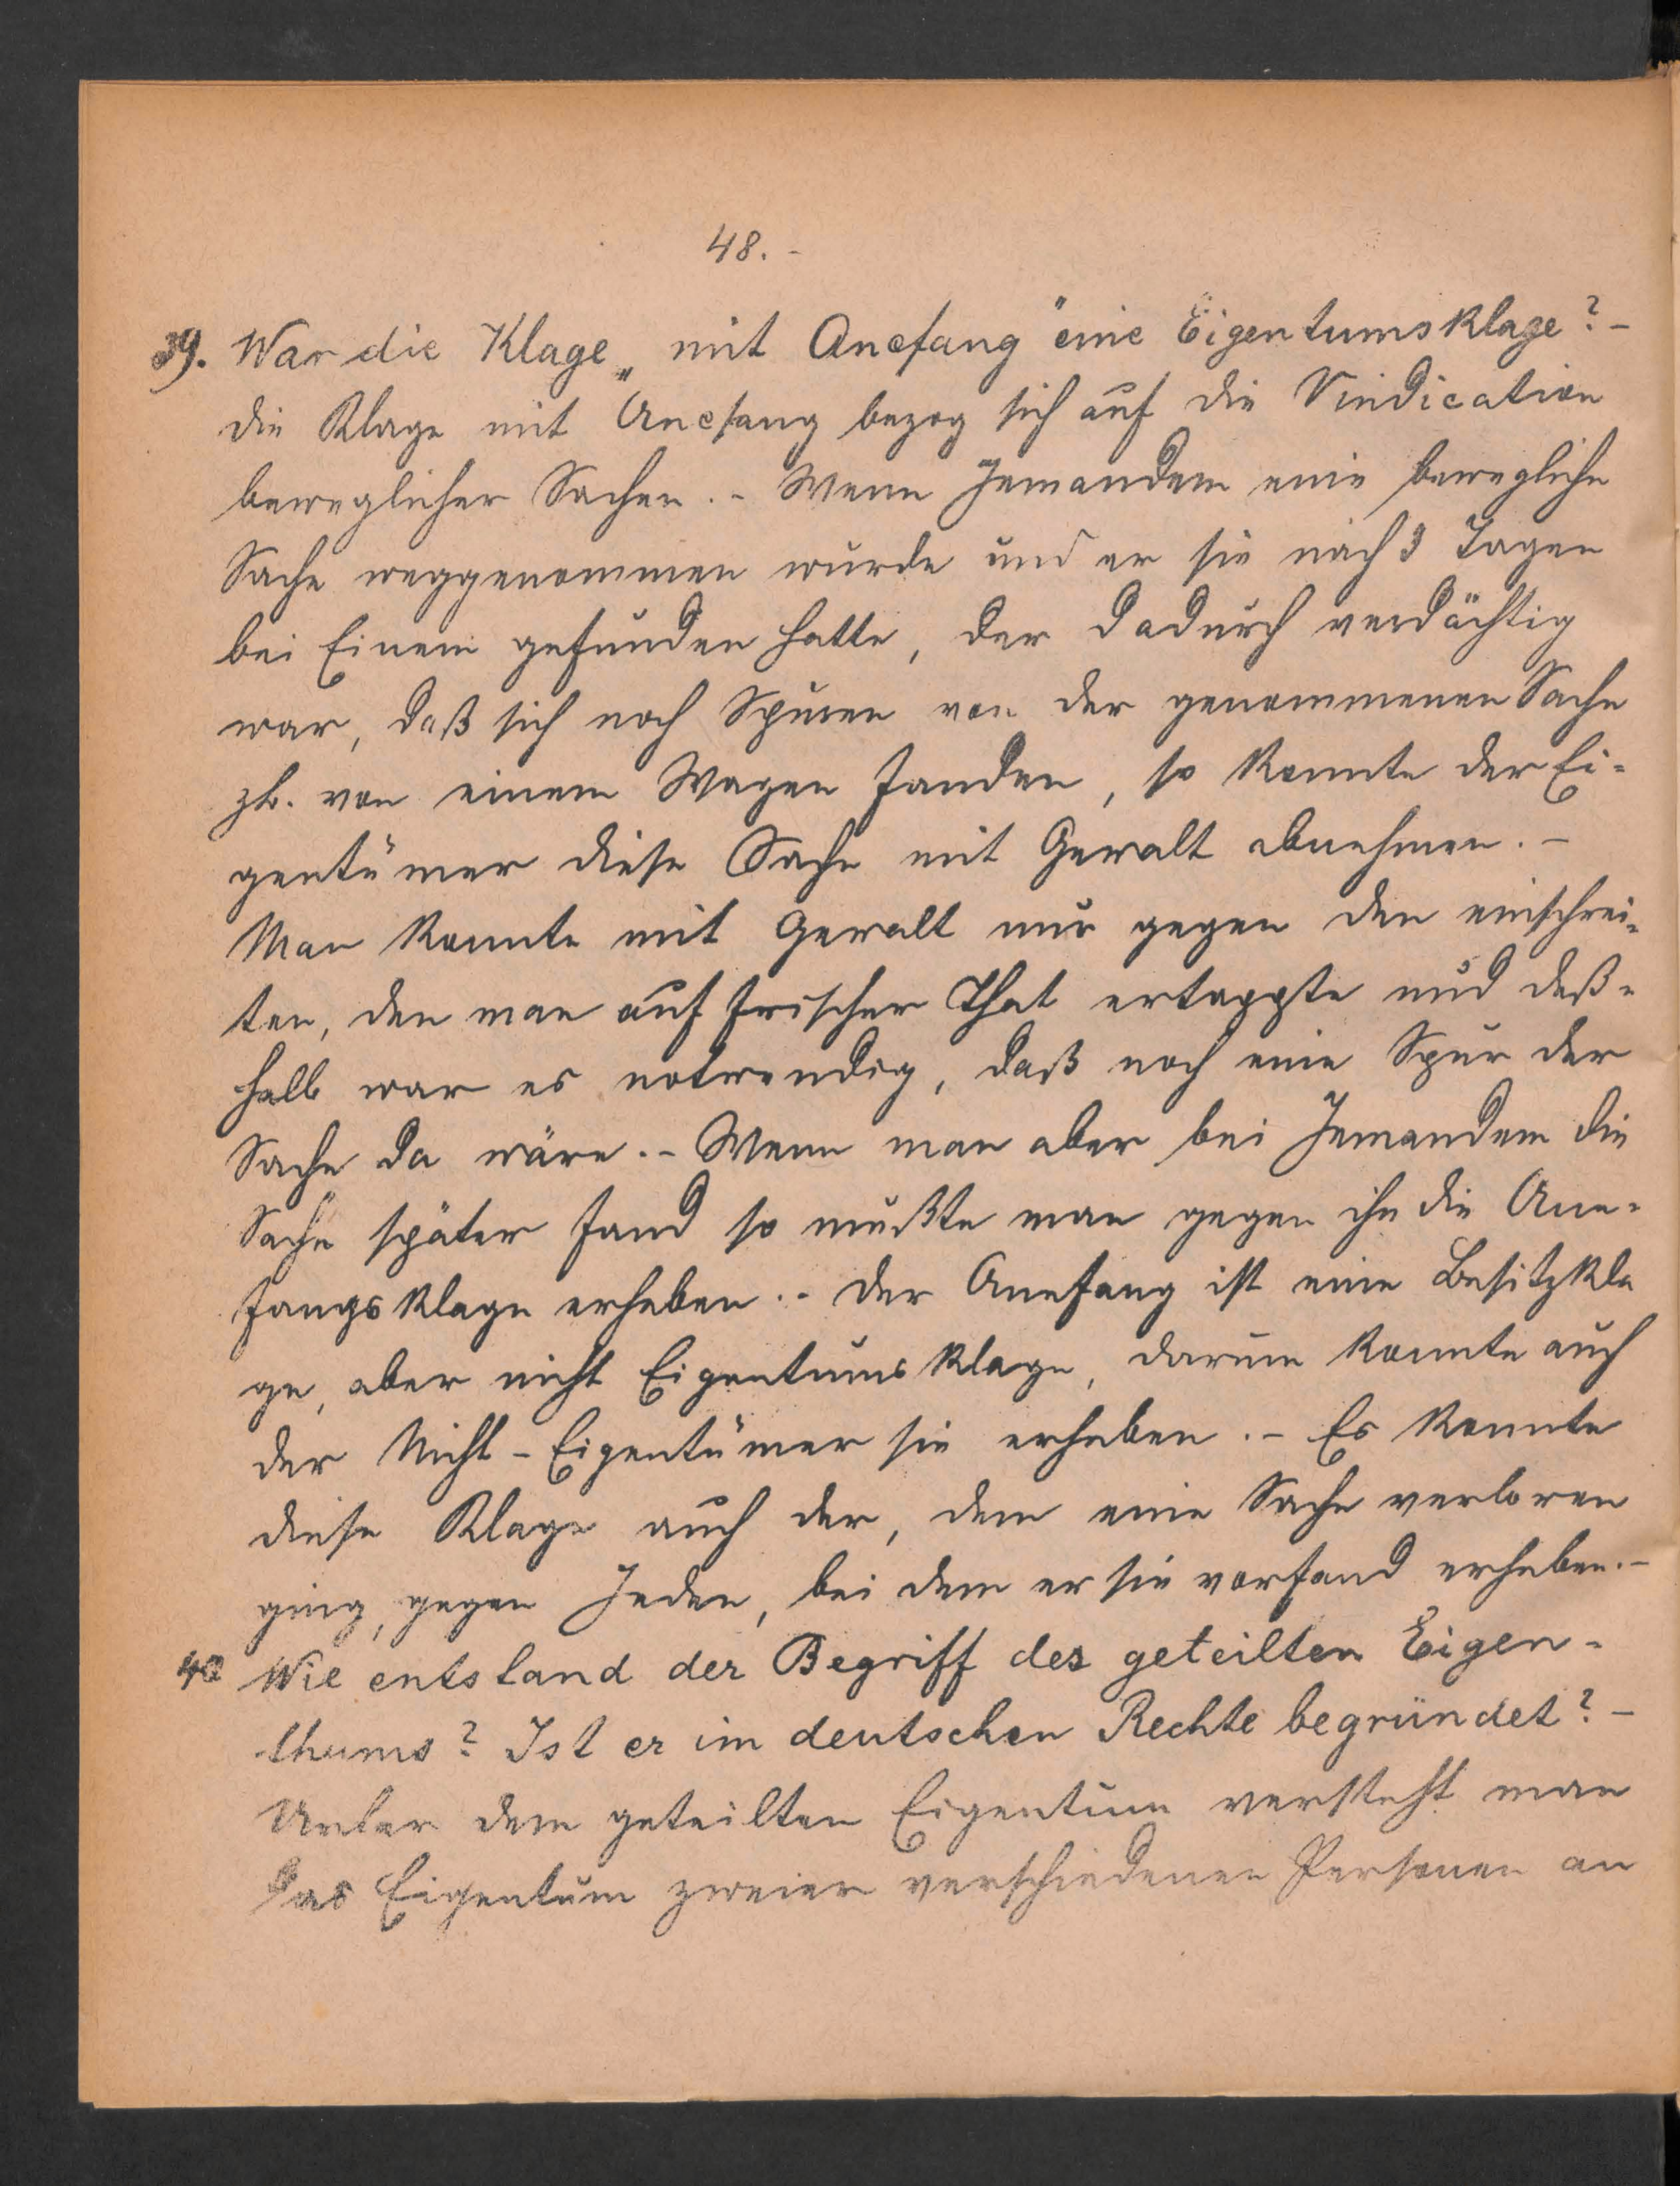 48.-
39. War die Klage „mit Anefang" eine Eigentumsklage? -
Die Klage mit Anefang bezog sich auf die Vindication
beweglicher Sachen. - Wenn Jemandem eine bewegliche
Sache weggenommen wurde und er sie nach 3 Tagen
bei Einem gefunden hatte, der dadurch verdächtig
war, daß sich noch Spuren von der genommenen Sache
zb. von einem Wagen fanden, so konnte der Ei-
gentümer diese Sache mit Gewalt abnehmen. -
Man konnte mit Gewalt nur gegen den einschrei-
ten, den man auf frischer That ertappte und deß-
halb war es notwendig, daß noch eine Spur der
Sache da wäre. - Wenn man aber bei Jemandem die
Sache später fand so mußte man gegen ihn die Ane-
fangsklage erheben. - Der Anefang ist eine Besitzkla
ge, aber nicht Eigentumsklage, darum konnte auch
der Nicht-Eigentümer sie erheben. - Es konnte
diese Klage auch der, dem eine Sache verloren
ging, gegen Jeden, bei dem er sie vorfand erheben. -
40 Wie entstand der Begriff des geteilten Eigen-
thums? Ist er im deutschen Rechte begründet? -
Unter dem geteilten Eigentum versteht man
das Eigentum zweier verschiedenen Personen an